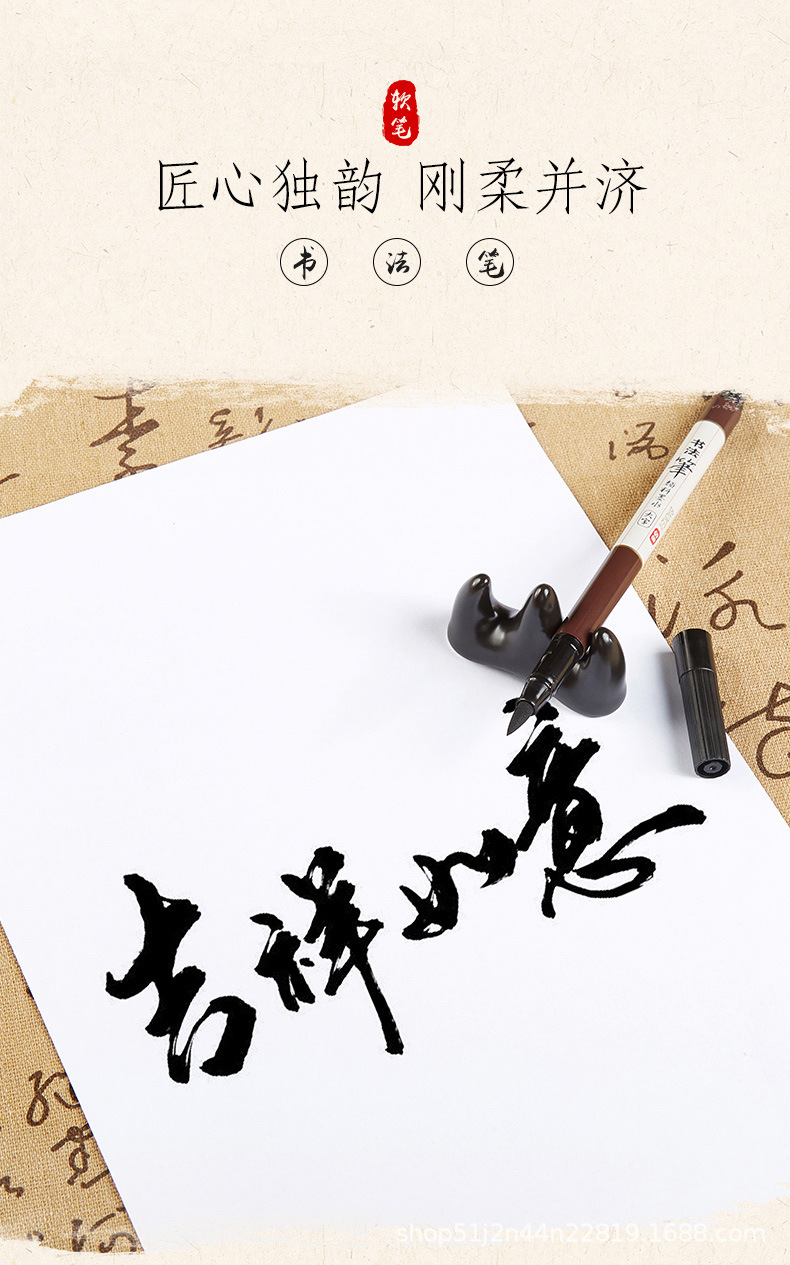 软笔
匠心独韵 刚柔并济
书 法 笔
书法笔
大字
吉祥如意
shop51j2n44n22819.1688.com